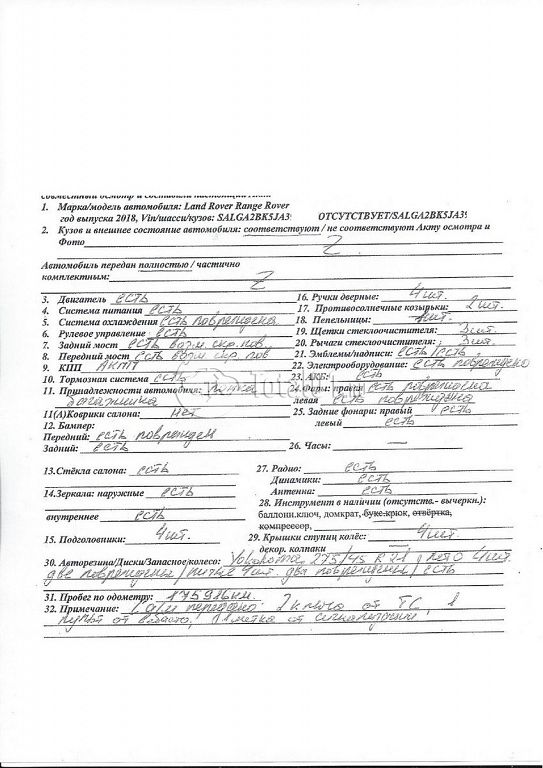 1. Марка/модель автомобиля: Land Rover Range Rover
год выпуска 2018, Vin/шасси/кузов: SALGA2BK5JA3 ОТСУТСТВУЕТ/SALGA2BK5JA39
2. Кузов и внешнее состояние автомобиля: соответствуют / не соответствуют Акту осмотра и
Фото Z
Автомобиль передан полностью / частично
комплектным: Z
3. Двигатель есть
4. Система питания есть
5. Система охлаждения есть повреждена
6. Рулевое управление есть
7. Задний мост есть возм. скр. пов
8. Передний мост есть возм. скр. пов
9. КПП АКПП
10. Тормозная система есть
11. Принадлежности автомобиля: полка
багажника
11(А)Коврики салона: нет
12. Бампер:
Передний: есть поврежден
Задний: есть
13.Стёкла салона: есть
14.Зеркала: наружные есть
внутреннее есть
15. Подголовники: 4шт.
16. Ручки дверные: 4шт.
17. Противосолнечные козырьки: 2шт.
18. Пепельницы: шт.
19. Щетки стеклоочистителя: 3шт.
20. Рычаги стеклоочистителя: 3шт.
21. Эмблемы/надписи: есть/есть
22. Электрооборудование: есть повреждено
23. АКБ: есть
24. Фары: правая есть повреждена
левая есть повреждена
25. Задние фонари: правый есть
левый есть
26. Часы: —
27. Радио: есть
Динамики: есть
Антенна: есть
28. Инструмент в наличии (отсутств.- вычеркн.):
баллонн.ключ, домкрат, букс.крюк, отвёртка,
компрессор,
29. Крышки ступиц колёс: 4шт.
декор. колпаки
30. Авторезина/Диски/Запасное/колесо: Yokohama 275/45 R21, лето 4шт.
две повреждены / литые 4шт. два повреждены / есть
31. Пробег по одометру: 175916км.
32. Примечание: передано: 2 ключа от ТС, 1
пульт от вебасто, 1 метка от сигнализации